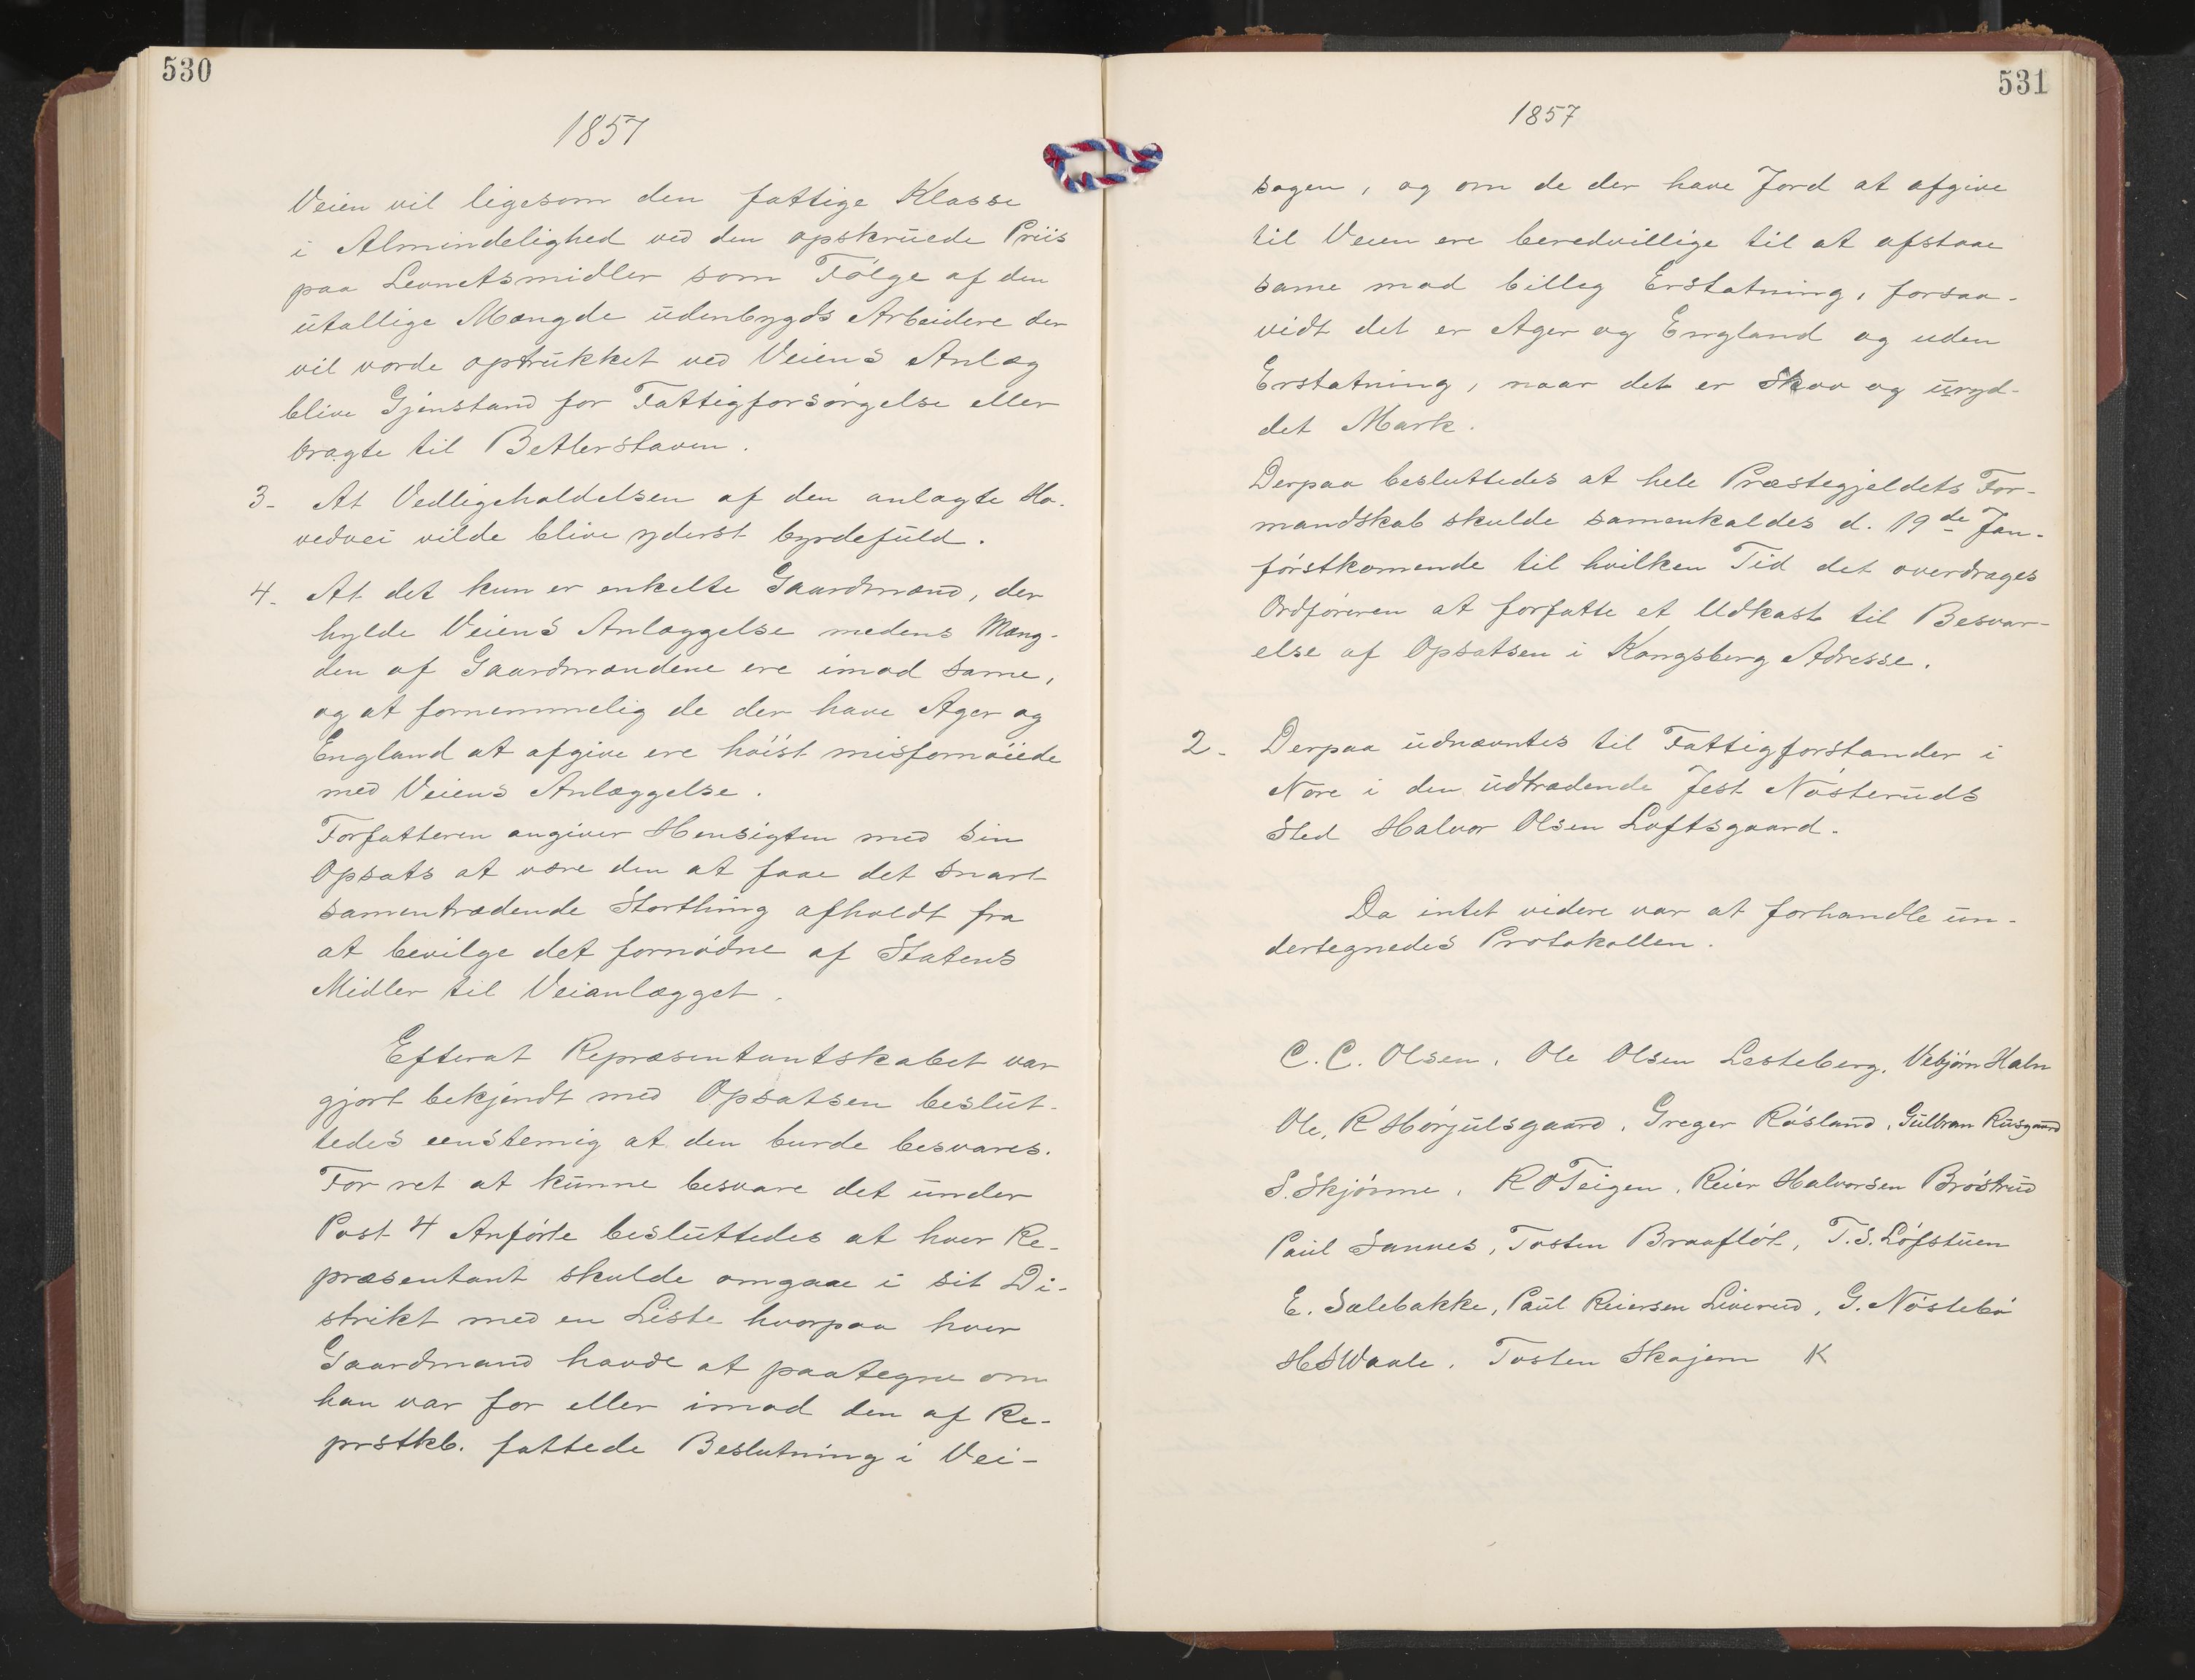 530
1857
Veien vil ligesom den fattige Klasse
i Almindelighed ved den opskruede Priis
paa Levnetsmidler som Følge af den
utallige Mængde udenbygds Arbeidere der
vil vorde optrukket ved Veiens Anlæg
blive Gjenstand for Fattigforsørgelse eller
bragte til Betlerstaven.
3. At Vedligeholdelsen af den anlagte Ho-
vedvei vilde blive yderst byrdefuld.
4. At det kun er enkelte Gaardmænd, der
hylde Veiens Anlæggelse medens Mæng-
den af Gaardmændene ere imod same,
og at fornemmelig de der have Ager og
England at afgive ere høist misfornøiede
med Veiens Anlæggelse.
Forfatteren angiver Hensigten med sin
Opsats at være den at faae det snart
samentrædende Storthing afholdt fra
at bevilge det fornødne af Statens
Midler til Veianlægget.
Efterat Repræsentantskabet var
gjort bekjendt med Opsatsen beslut-
tedes eenstemig at den burde besvares.
For ret at kunne besvare det under
Post 4 Anførte besluttedes at hver Re-
præsentant skulde omgaae i sit Di-
strikt med en Liste hvorpaa hver
Gaardmand havde at paategne om
han var for eller imod den af Re-
prstkb. fattede Beslutning i Vei-
531
1857
sagen, og om de der have Jord at afgive
til Veien ere beredvillige til at afstaae
same mod billig Erstatning, forsaa-
vidt det er Ager og England og uden
Erstatning, naar det er Skov og uryd-
det Mark.
Derpaa besluttedes at hele Præstegjeldets For-
mandskab skulde samenkaldes d. 19de Jan.
førstkomende til hvilken Tid det overdrages
Ordføreren at forfatte et Udkast til Besvar-
else af Opsatsen i Kongsberg Adresse.
2. Derpaa udnævntes til Fattigforstander i
Nore i den udtrædende Jest Nøsteruds
Sted Halvor Olsen Loftsgaard.
Da intet videre var at forhandle un-
dertegnedes Protokollen.
C. C. Olsen. Ole Olsen Lesteberg. Vebjørn Haln
Ole, R Hørjulsgaard. Greger Røsland. Gulbran Rusgaard
S. Skjønne. R O Teigen. Reier Halvorsen Brøstrud
Paul Sannes, Tosten Braafløt, T. S. Løfstuen
E. Sælebakke, Paul Reiersen Liverud, G. Nøstebø
H S Waale. Tosten Skajem K